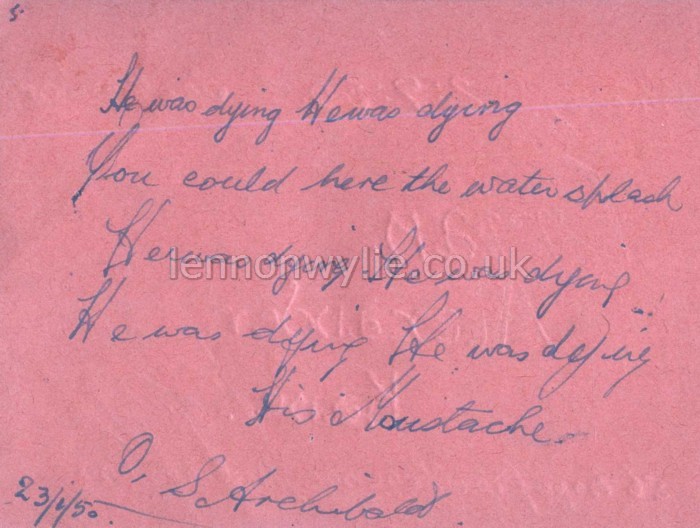 5
He was dying He was dying
You could here the water splash
He was dying He was dying
lennonwylie.co.uk
He was dying He was dying
His Moustache
O, S Archibald
23/1/50